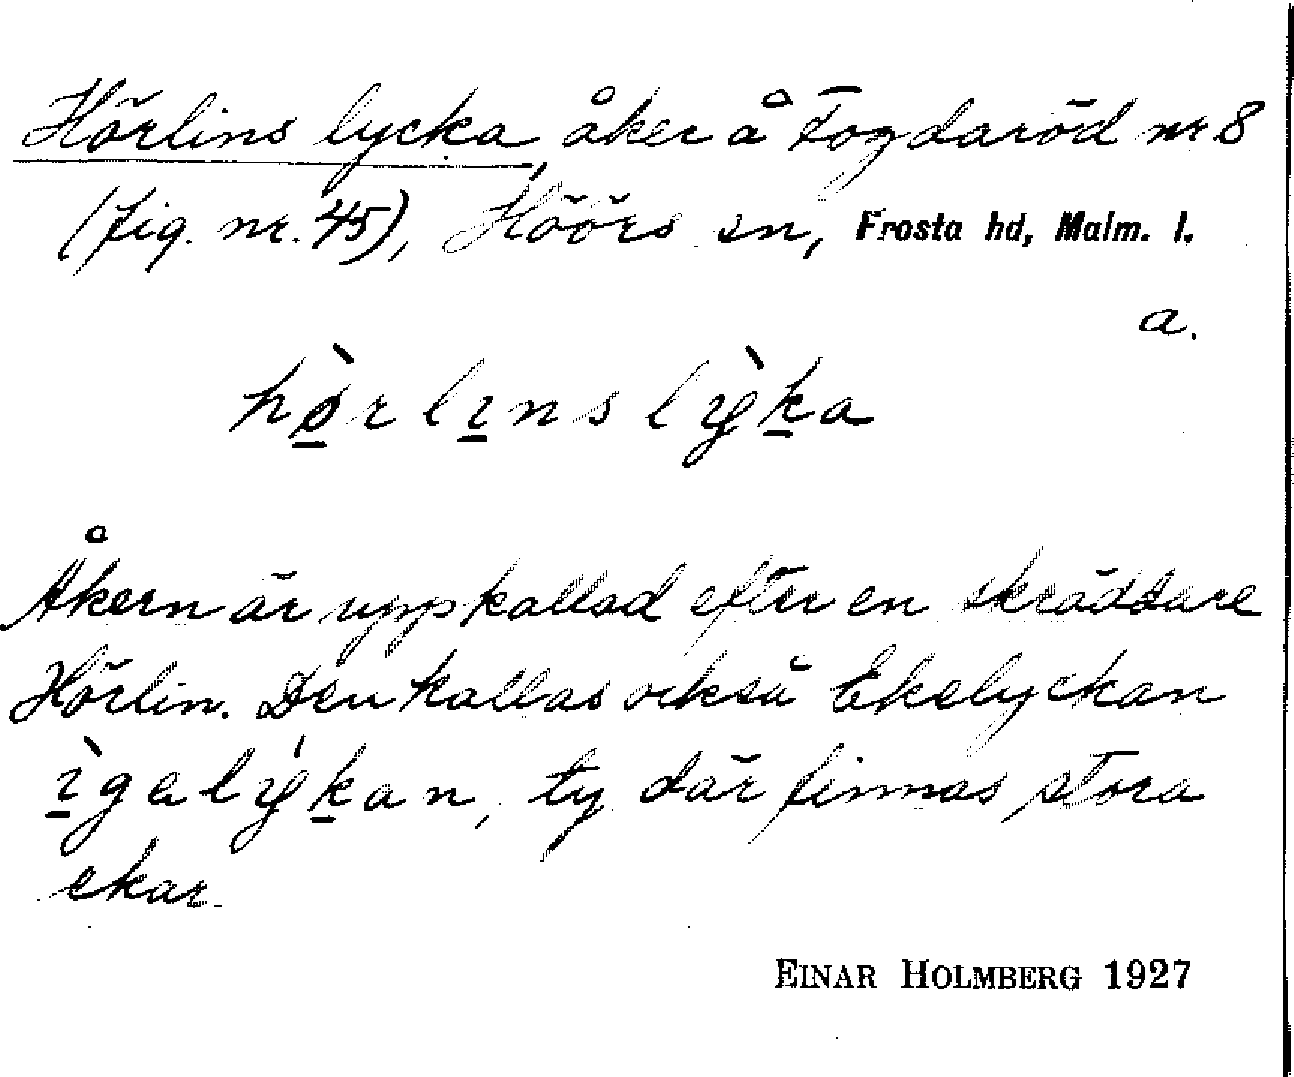 Hörlins lycka, åker å Fogdaröd nr 8
(fig. nr. 45), Höörs sn, Frosta hd, Malm. l.
a.
hø̀rlinslỳka
Åkern är uppkallad efter en skräddare
Hörlin. Den kallas också Ekelyckan
ìgəlýkan, ty där finnas stora
ekar.
EINAR HOLMBERG 1927